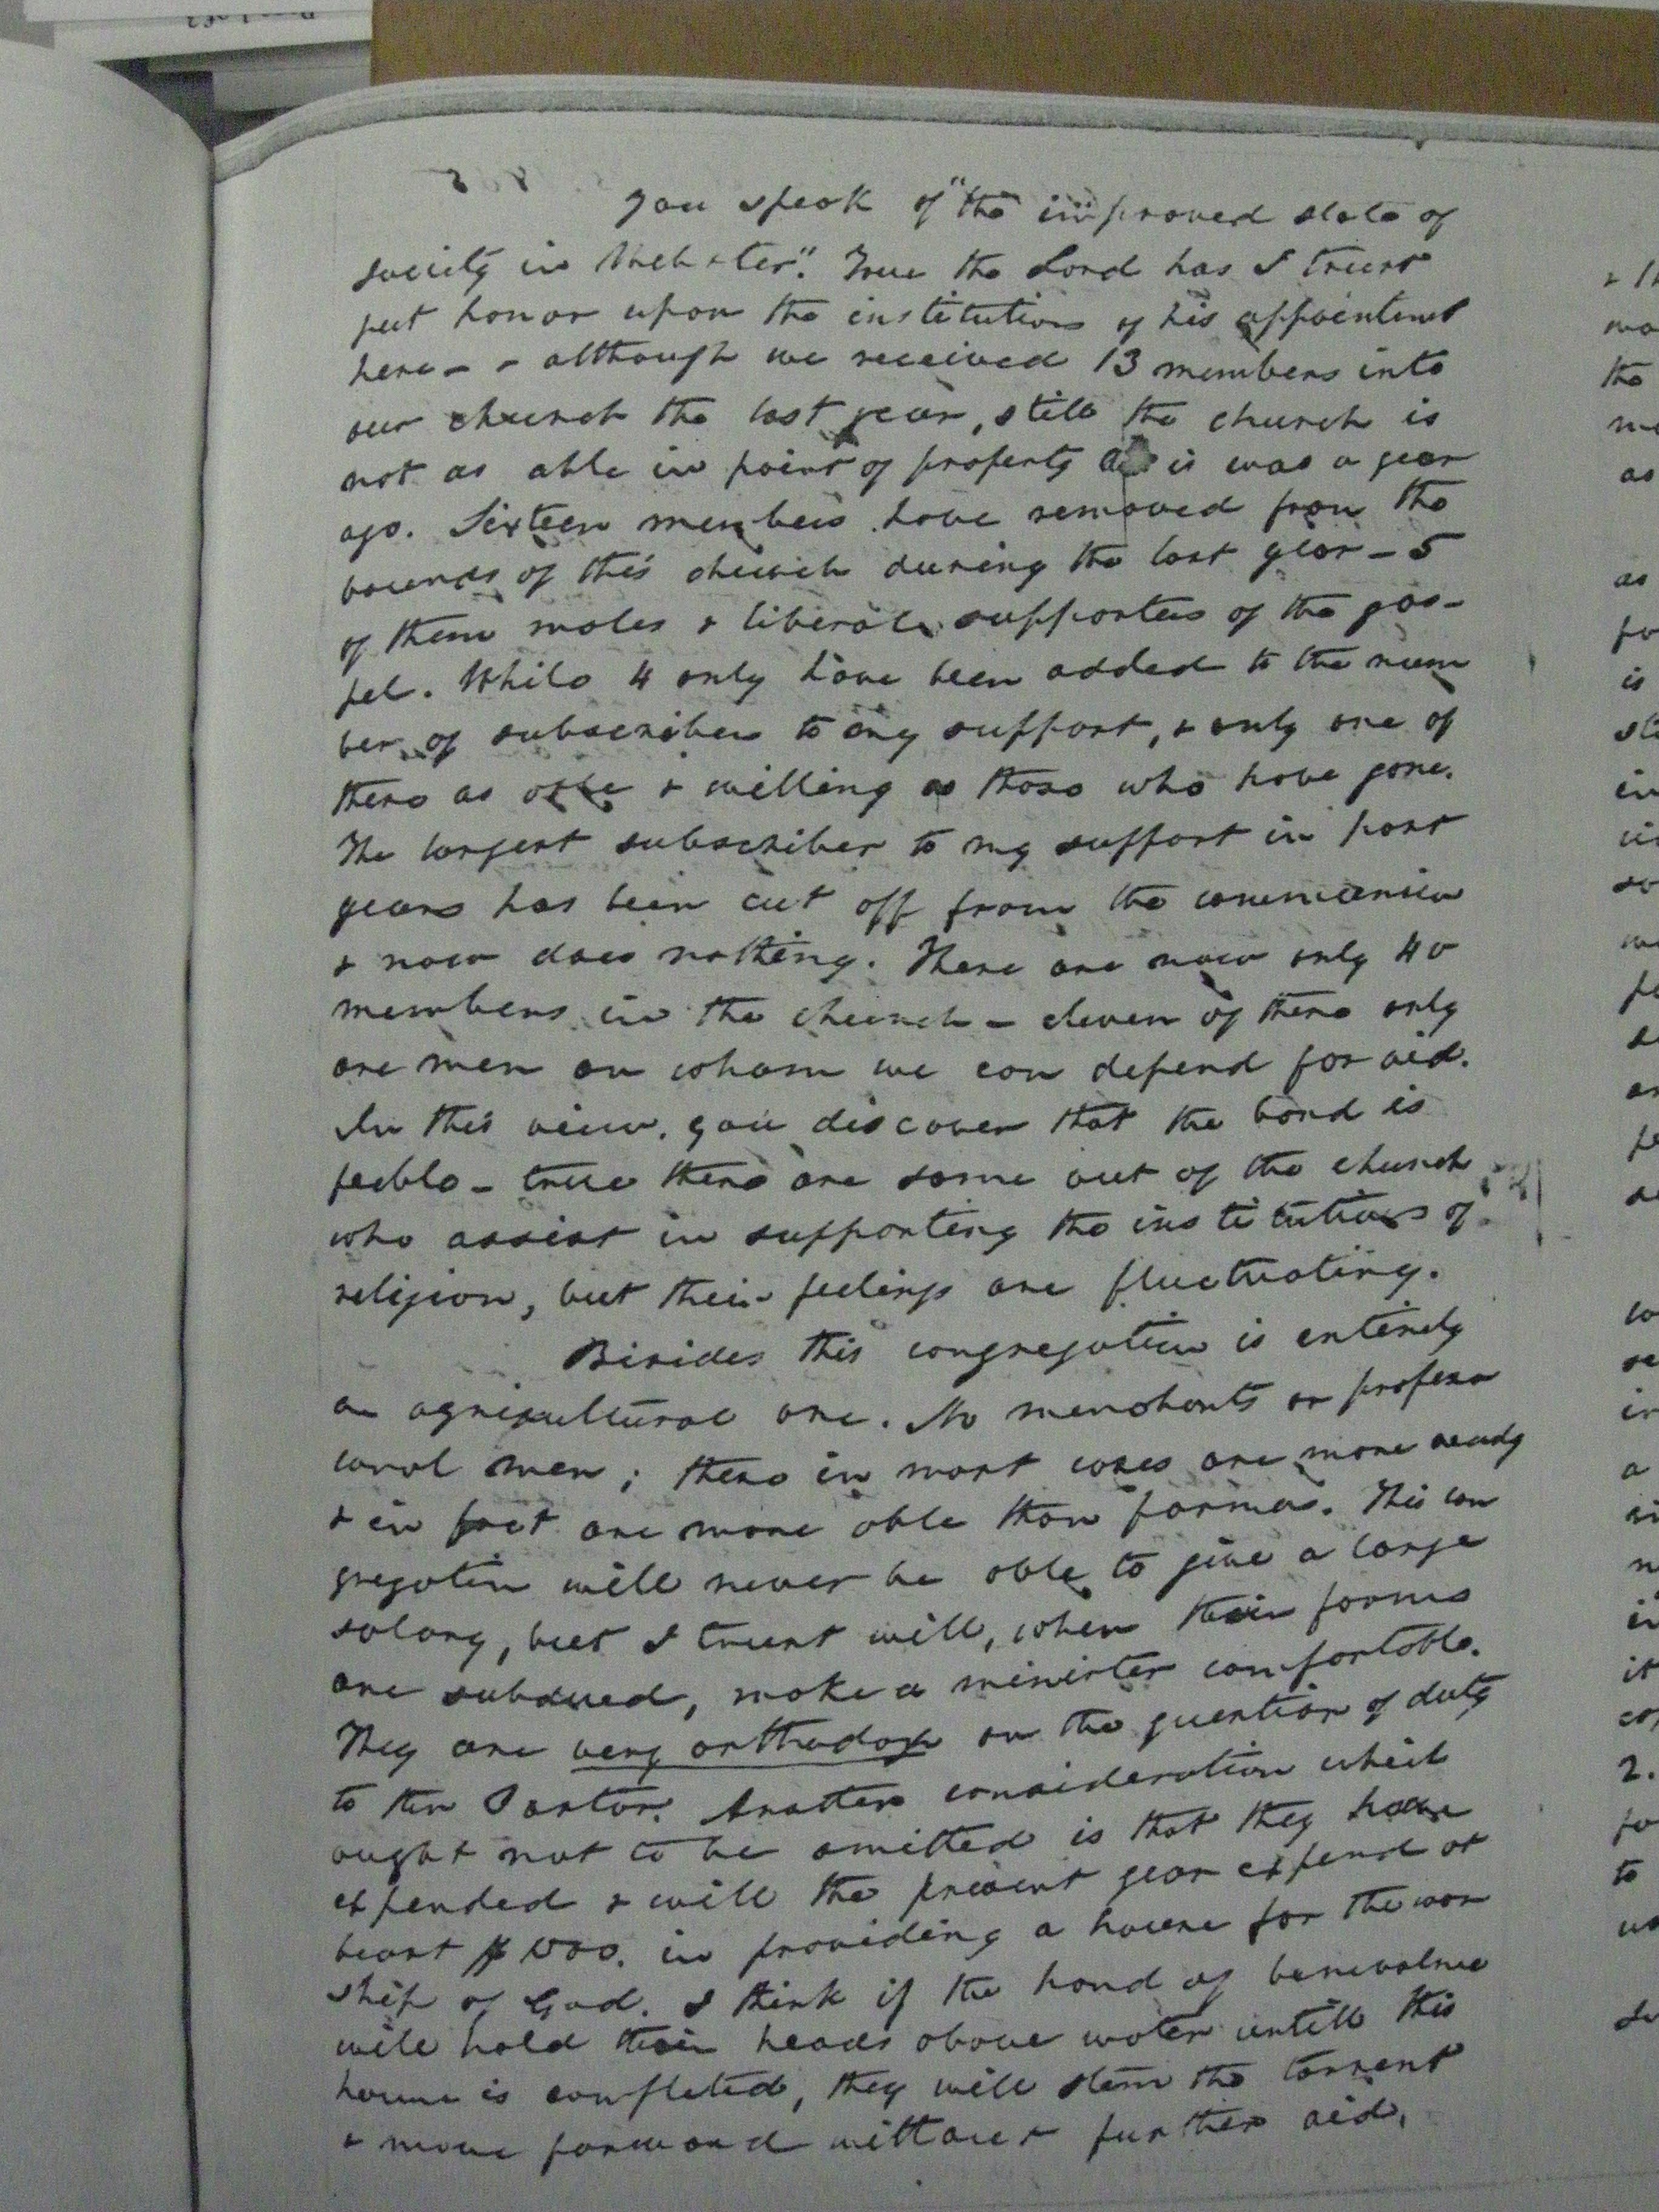 you speak of "the improved state of
society in Webster". True the Lord has I trust
put honor upon the institutions of his appointment
here - & although we received 13 members into
our church the last year, still the church is
not as able in point of property as is was a year
ago. Sixteen members have removed from the
bounds of this church during the last year - 5
of them males & liberal supporters of the gos-
pel. While 4 only have been added to the num
ber of subscribers to my support, & only one of
these as able & willing as those who have gone.
The largest subscriber to my support in past
years has been cut off from the communion
& now does nothing. There are now only 40
members in the church - eleven of these only
are men on whom we can depend for aid.
In this view, you discover that the band is
feeble - true there are some out of the church
who assist in supporting the institutions of
religion, but their feelings are fluctuating.
Besides this congregation is entirely
an agricultural one. No merchants or profess
ional men; these in most cases are more ready
& in fact are more able than farmers. This con
gregation will never be able to give a large
salary, but I trust will, when their farms
are subdued, make a minister comfortable.
They are very orthodox on the question of duty
to their Pastor. Another consideration which
ought not to be omitted is that they have
expended & will the present year expend at
least $ 1000. in providing a house for the wor
ship of God. I think if the hand of benevolence
will hold their heads above water untill this
house is completed, they will stem the torrent
& move forward without further aid.